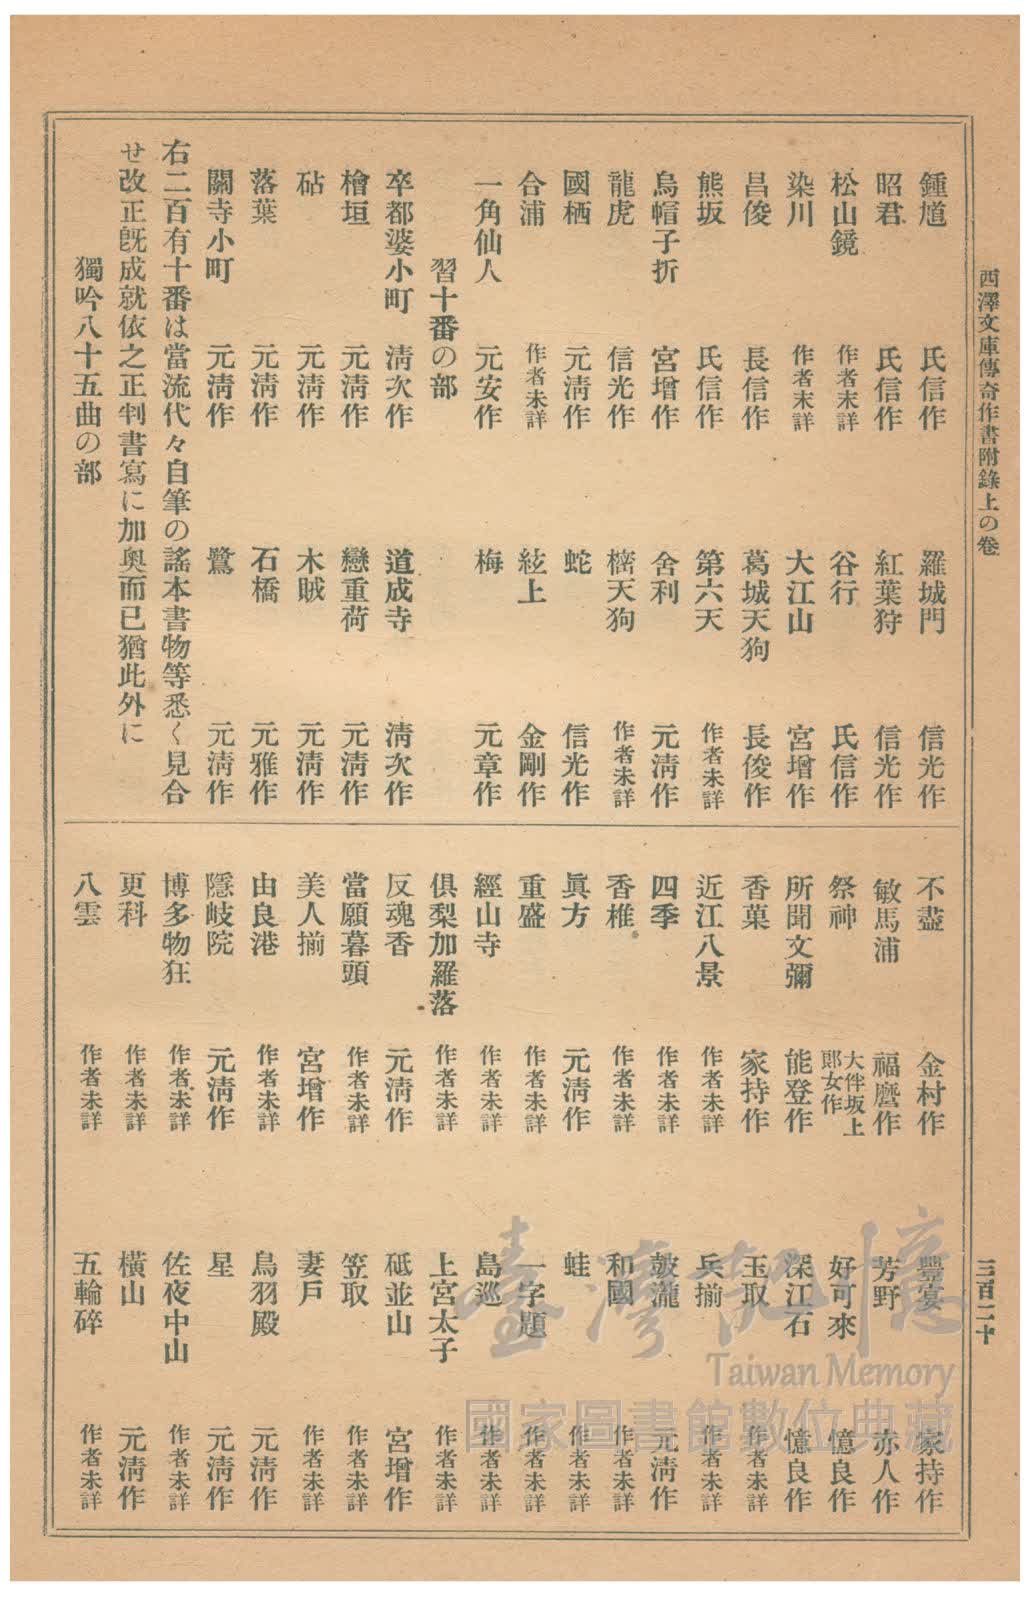 西澤文庫傳奇作書附錄上の卷
三百二十
鍾馗 氏信作 羅城門 信光作
昭君 氏信作 紅葉狩 信光作
松山鏡 作者未詳 谷行 氏信作
染川 作者未詳 大江山 宮增作
昌俊 長信作 葛城天狗 長俊作
熊坂 氏信作 第六天 作者未詳
烏帽子折 宮增作 舍利 元淸作
龍虎 信光作 樒天狗 作者未詳
國栖 元淸作 蛇 信光作
合浦 作者未詳 絃上 金剛作
一角仙人 元安作 梅 元章作
習十番の部
卒都婆小町 淸次作 道成寺 淸次作
檜垣 元淸作 戀重荷 元淸作
砧 元淸作 木賊 元淸作
落葉 元淸作 石橋 元雅作
關寺小町 元淸作 鷺 元淸作
右二百有十番は當流代々自筆の謠本書物等悉く見合
せ改正旣成就依之正判書寫に加奧而已猶此外に
獨吟八十五曲の部
不盡 金村作 豐宴 家持作
敏馬浦 福麿作 芳野 赤人作
祭神 大伴坂上郞女作 好可來 憶良作
所聞文彌 能登作 深江石 憶良作
香菓 家持作 玉取 作者未詳
近江八景 作者未詳 兵揃 作者未詳
四季 作者未詳 鼓瀧 元淸作
香椎 作者未詳 和國 作者未詳
眞方 元淸作 蛙 作者未詳
重盛 作者未詳 一字題 作者未詳
經山寺 作者未詳 島巡 作者未詳
俱梨加羅落 作者未詳 上宮太子 作者未詳
反魂香 元淸作 砥並山 宮增作
當願暮頭 作者未詳 笠取 作者未詳
美人揃 宮增作 妻戶 作者未詳
由良港 作者未詳 鳥羽殿 元淸作
隱岐院 元淸作 星 元淸作
博多物狂 作者未詳 佐夜中山 作者未詳
更科 作者未詳 橫山 元淸作
八雲 作者未詳 五輪碎 作者未詳
臺灣記憶
Taiwan Memory
國家圖書館數位典藏